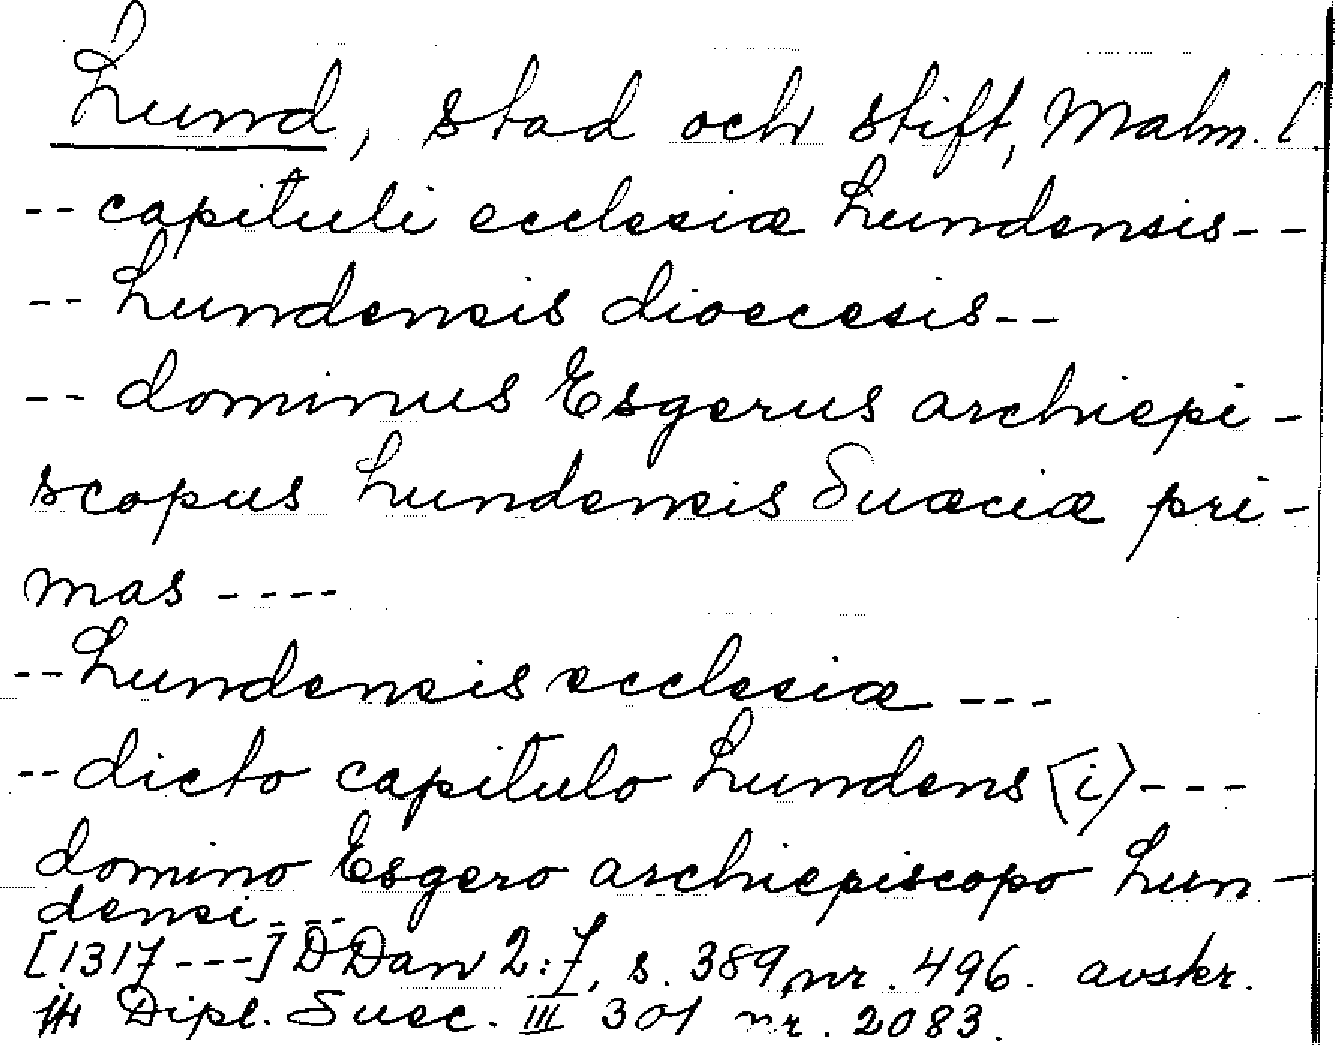 Lund, stad och stift, Malm. l.
-- capituli ecclesiæ Lundensis--
-- Lundensis dioecesis--
-- dominus Esgerus archiepi-
scopus Lundensis Suæciæ pri-
mas ----
-- Lundensis ecclesiæ ---
-- dicto capitulo Lundens⟨i⟩---
domino Esgero archiepiscopo Lun-
densi---
[1317---] DDan 2:7, s. 389, nr. 496. avskr.
Dipl. Suec. III 301 nr. 2083.